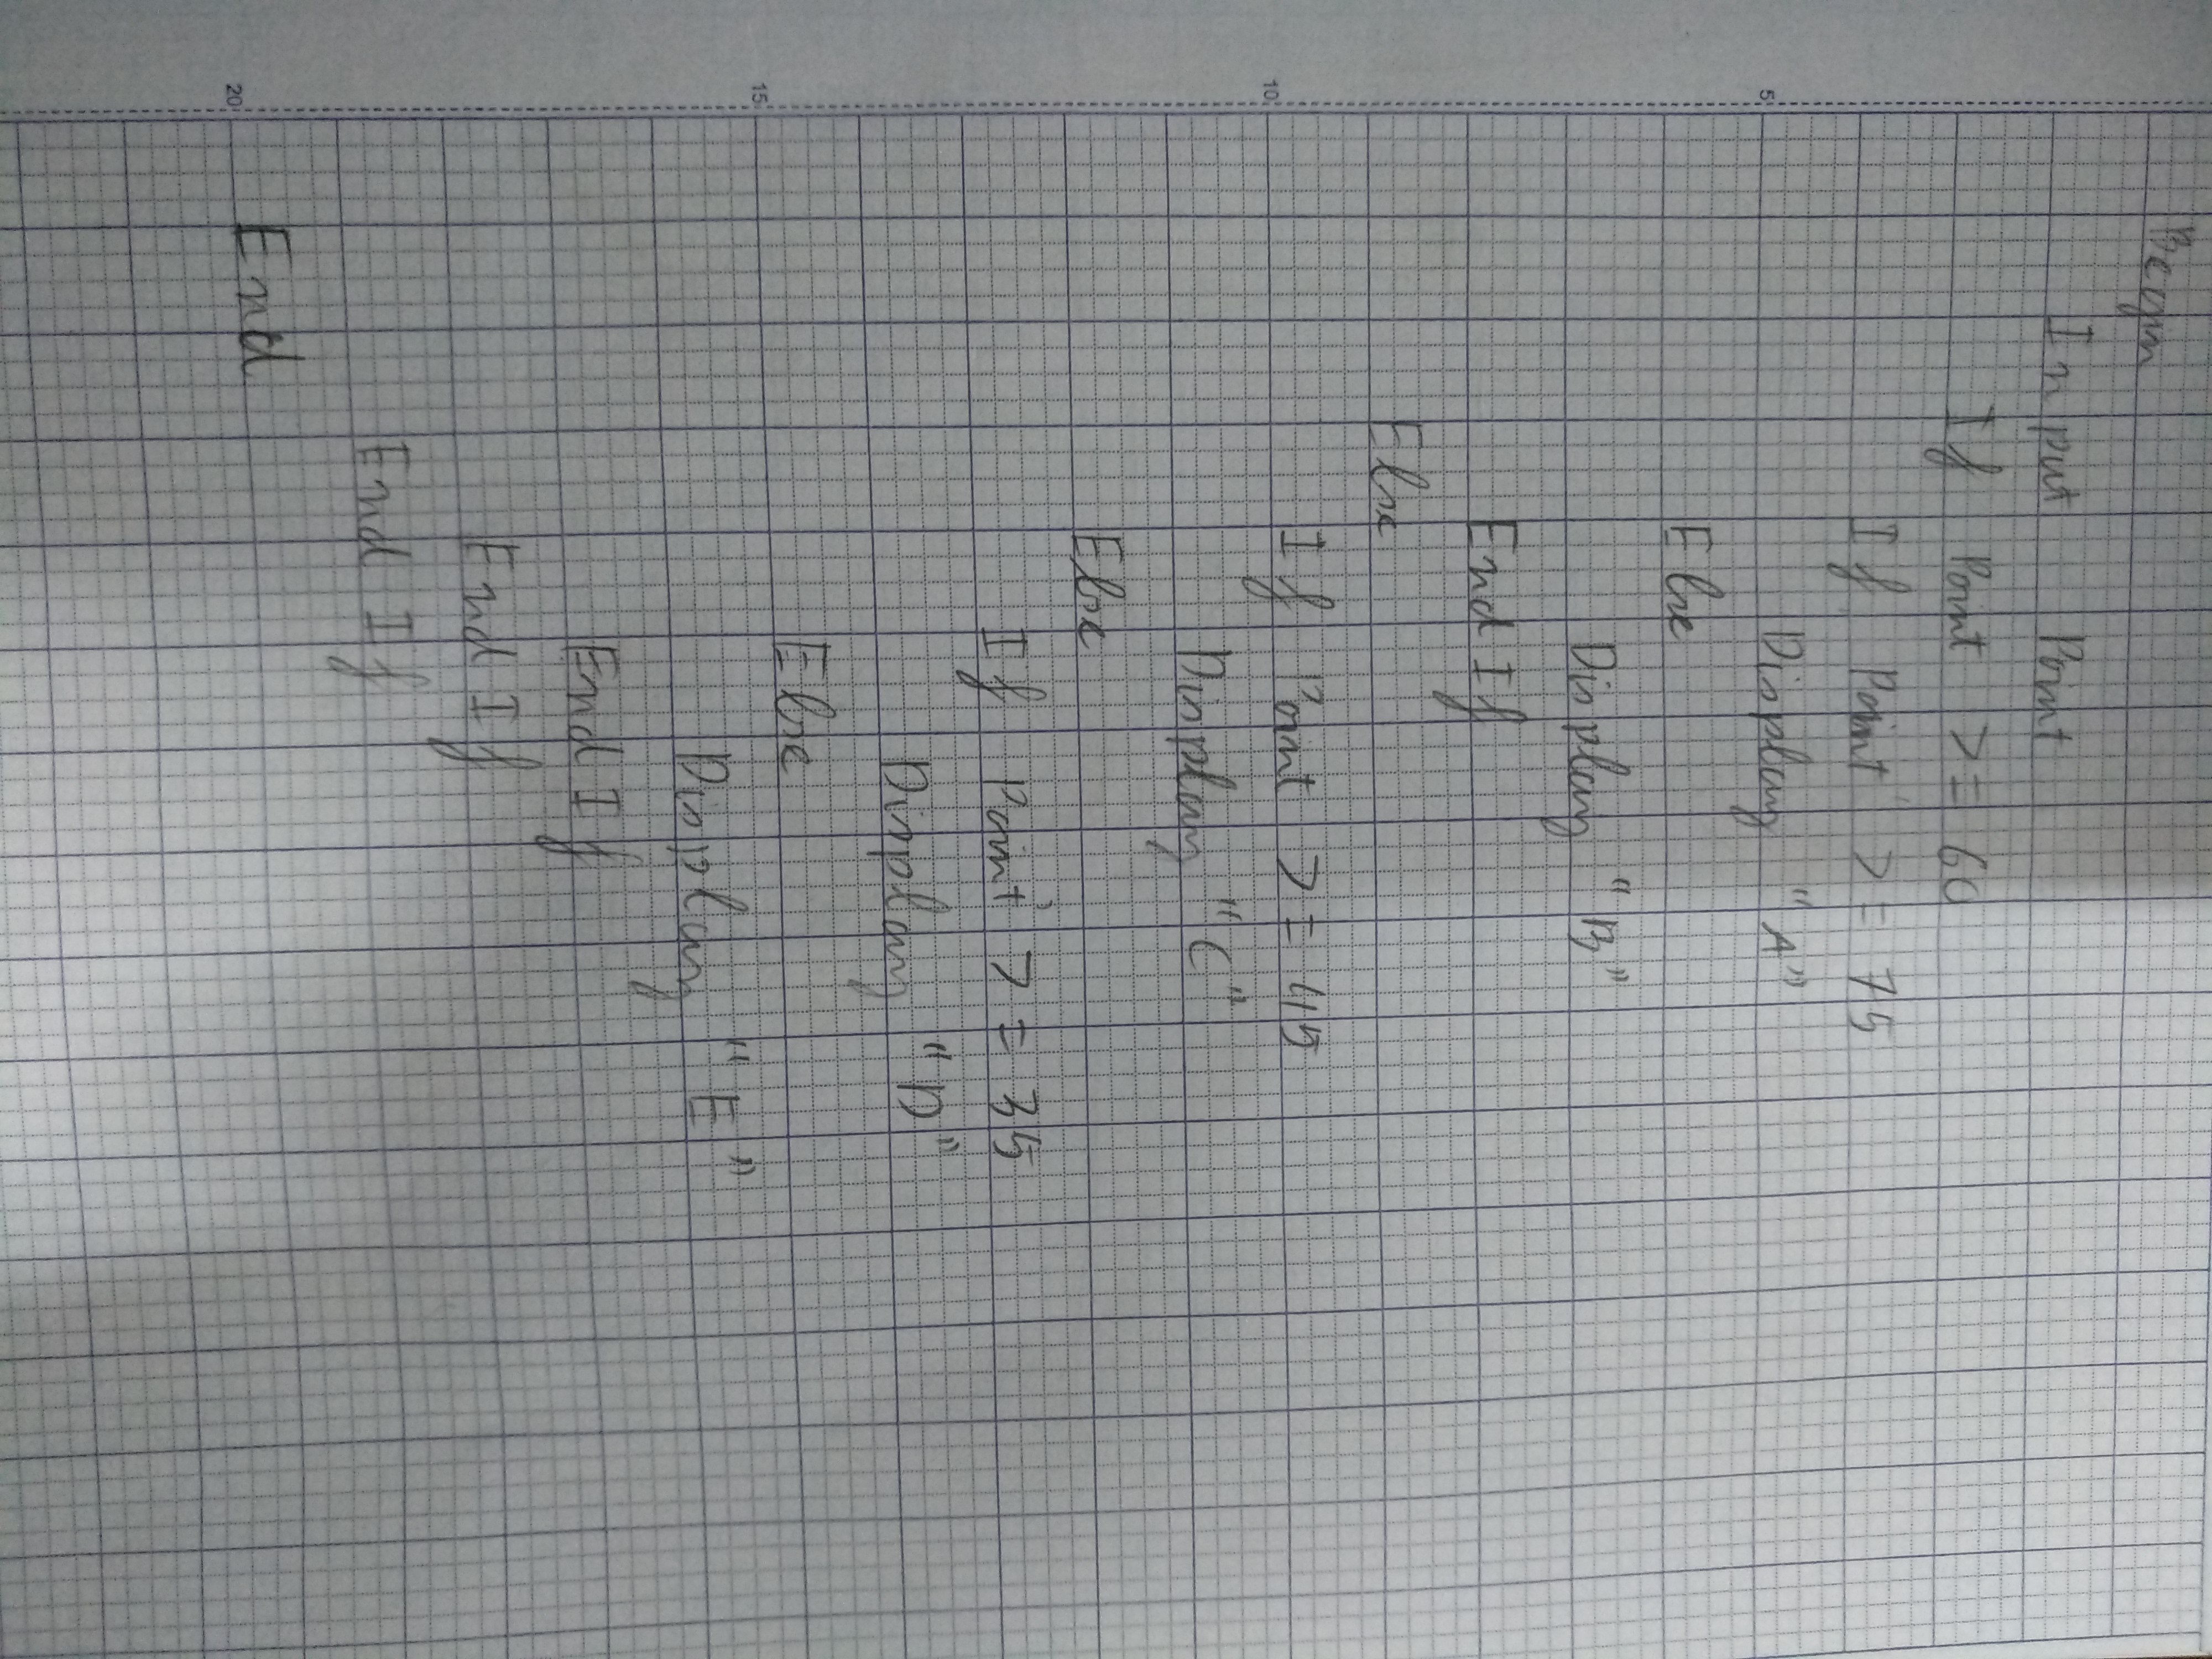 Begin
Input Point
If Point >= 60
If Point >= 75
Display "A"
Else
Display "B"
End If
Else
If Point >= 45
Display "C"
Else
If Point >= 35
Display "D"
Else
Display "E"
End If
End If
End If
End
5
10
15
20